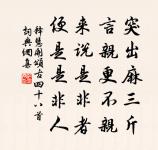 突出麻三斤
言親意更親
來說是非者
便是是非人
釋慧開頌古四十八首
詞典網集